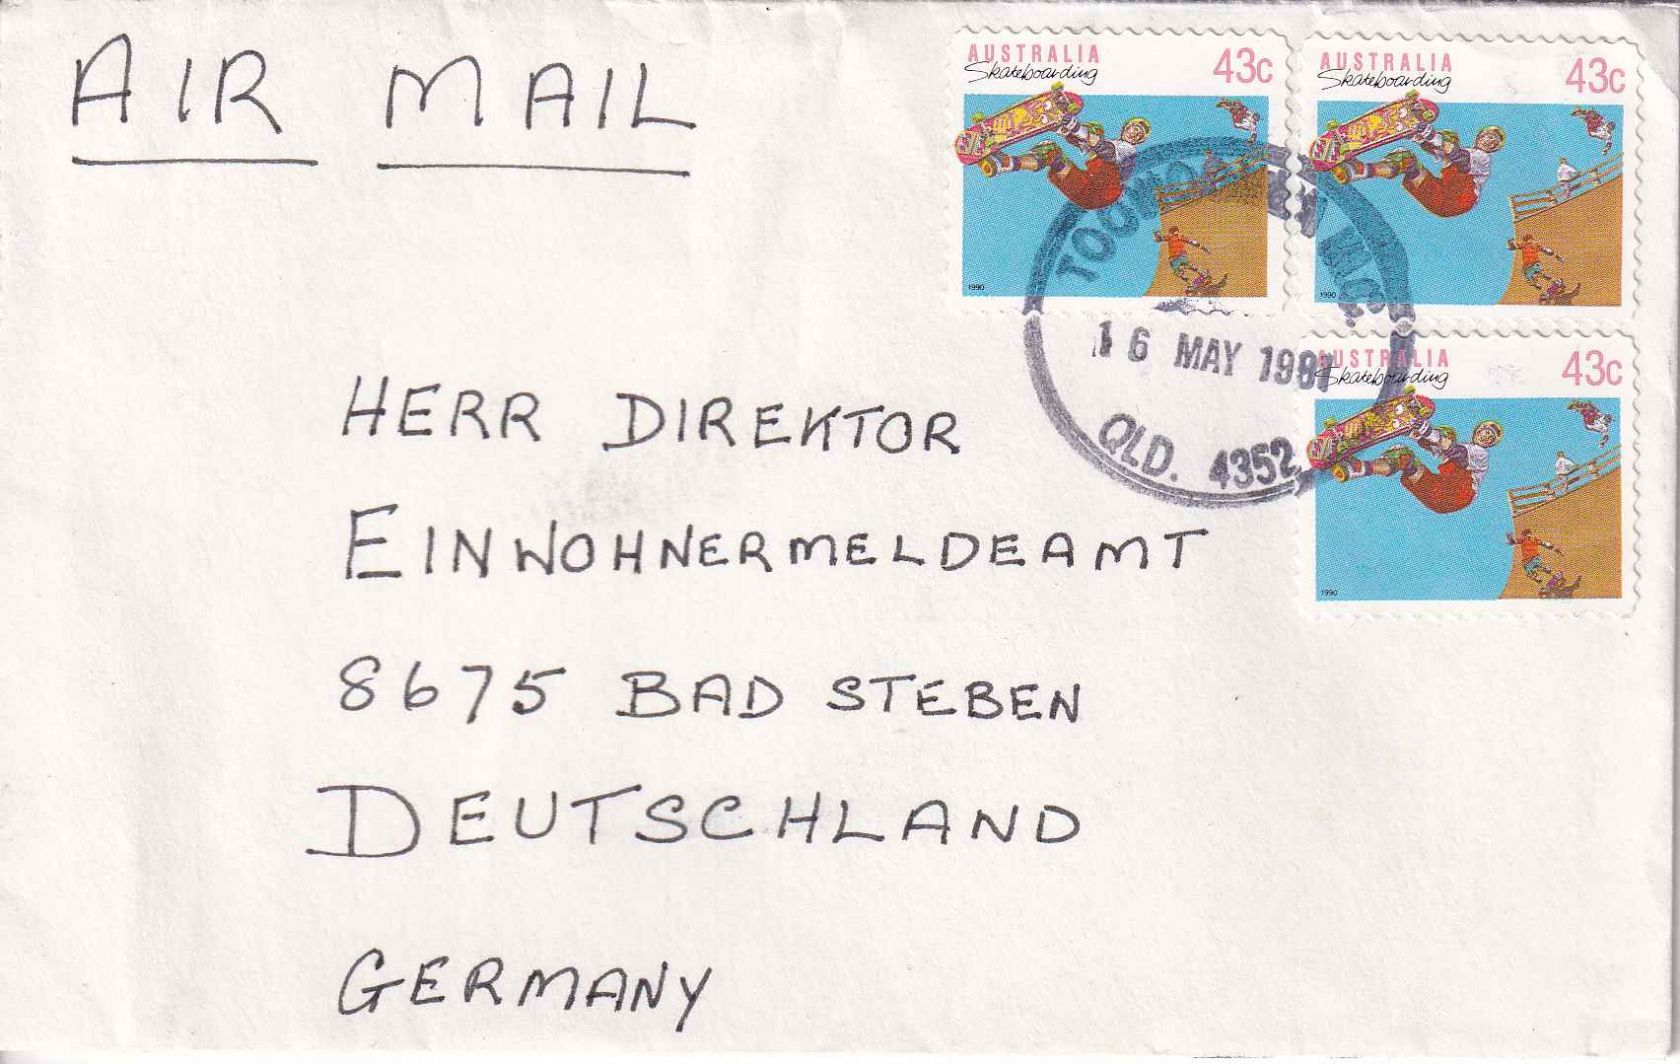 AIR MAIL
AUSTRALIA 43c
Skateboarding
1990
AUSTRALIA 43c
Skateboarding
1990
16 MAY 199
QLD. 4352
AUSTRALIA 43c
Skateboarding
1990
HERR DIREKTOR
EINWOHNERMELDEAMT
8675 BAD STEBEN
DEUTSCHLAND
GERMANY